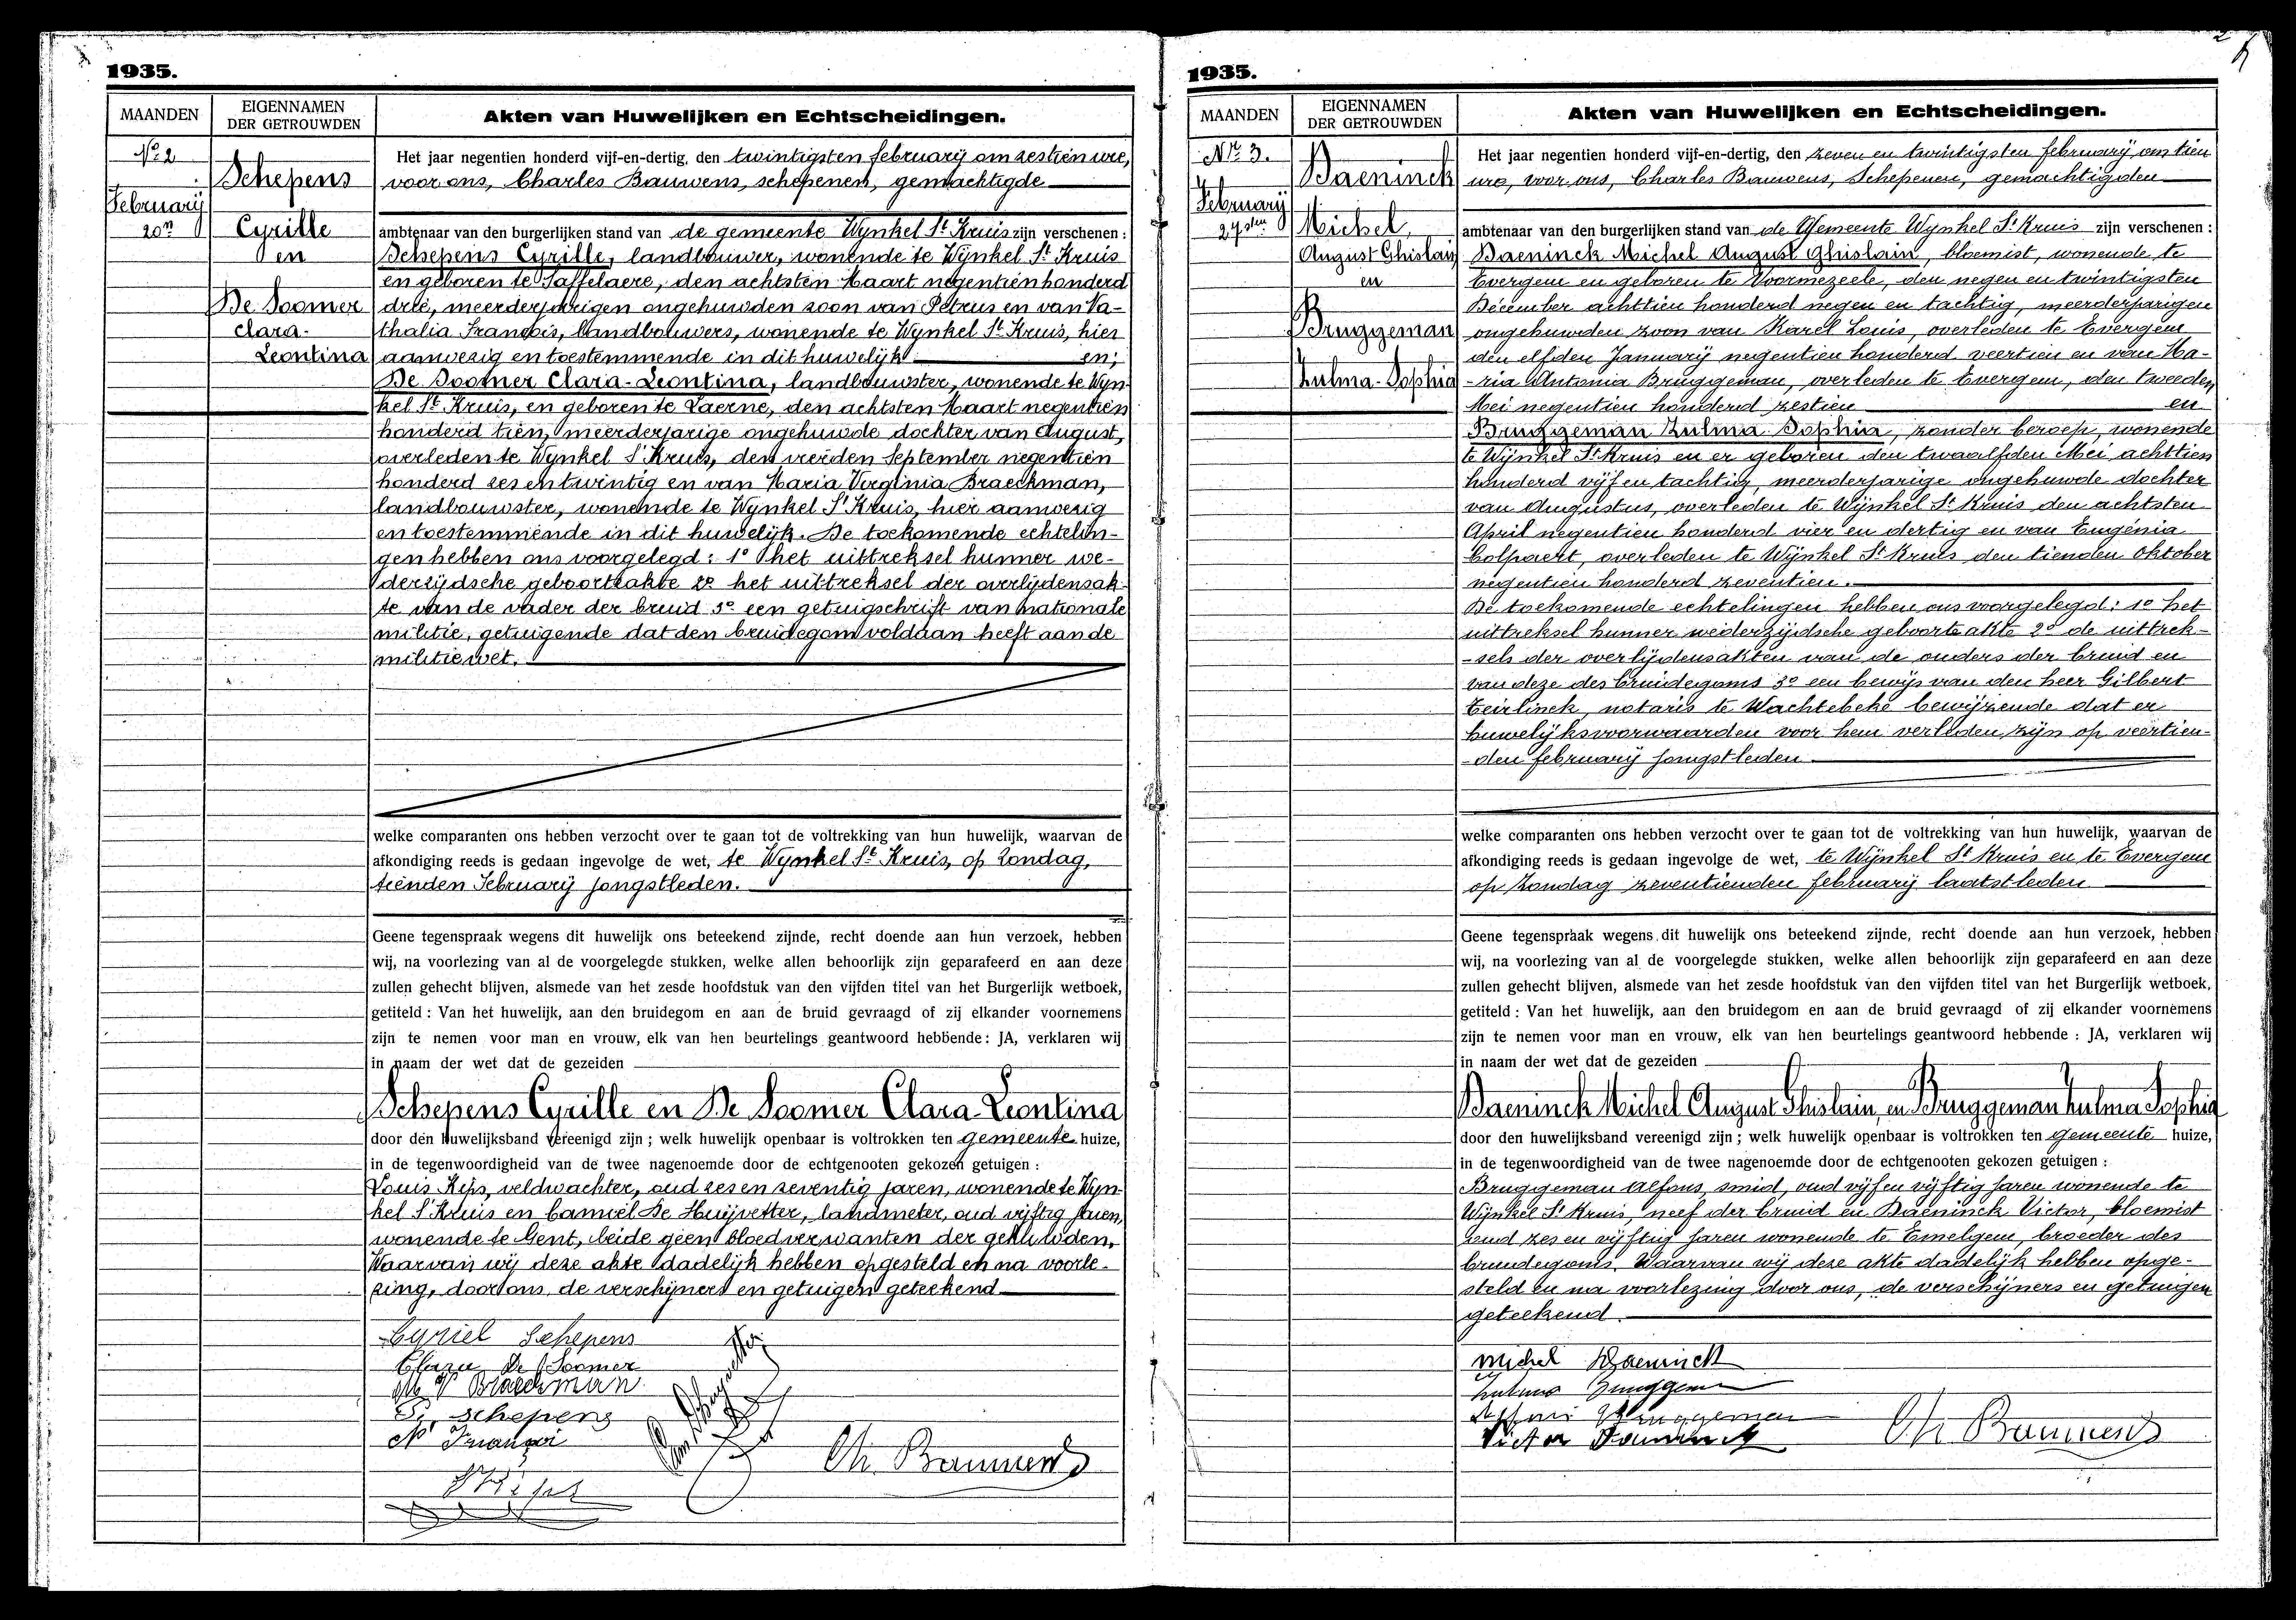 1935.
MAANDEN
EIGENNAMEN
DER GETROUWDEN
Akten van Huwelijken en Echtscheidingen.
No 2
Schepens
February
20n
Cyrille
en
De Soomer
Clara-
Leontina
Het jaar negentien honderd vijf-en-dertig, den twintigsten february om zestien ure,
voor ons, Charles Bauwens, schepenen, gemachtigde
ambtenaar van den burgerlijken stand van de gemeente Wynkel St Kruis zijn verschenen :
Schepens Cyrille, landbouwer, wonende te Wynkel St Kruis
en geboren te Saffelaere, den achtsten Maart negentien honderd
drie, meerderjarigen ongehuwden zoon van Petrus en van Na-
thalia François, landbouwers, wonende te Wynkel St Kruis, hier
aanwezig en toestemmende in dit huwelijk en;
De Soomer Clara-Leontina, landbouwster, wonende te Wyn-
kel St Kruis, en geboren te Laerne, den achtsten Maart negentien
honderd tien, meerderjarige ongehuwde dochter van August,
overleden te Wynkel St Kruis, den vierden September negentien
honderd zes en twintig en van Maria Virginia Braeckman,
landbouwster, wonende te Wynkel St Kruis, hier aanwezig
en toestemmende in dit huwelijk. De toekomende echtelin-
gen hebben ons voorgelegd : 1o het uittreksel hunner we-
derzijdsche geboorteakte 2o het uittreksel der overlijdensak-
te van de vader der bruid 3o een getuigschrift van nationale
militie, getuigende dat den bruidegom voldaan heeft aan de
militiewet.
welke comparanten ons hebben verzocht over te gaan tot de voltrekking van hun huwelijk, waarvan de
afkondiging reeds is gedaan ingevolge de wet, te Wynkel St Kruis, op Zondag,
tienden February jongstleden.
Geene tegenspraak wegens dit huwelijk ons beteekend zijnde, recht doende aan hun verzoek, hebben
wij, na voorlezing van al de voorgelegde stukken, welke allen behoorlijk zijn geparafeerd en aan deze
zullen gehecht blijven, alsmede van het zesde hoofdstuk van den vijfden titel van het Burgerlijk wetboek,
getiteld : Van het huwelijk, aan den bruidegom en aan de bruid gevraagd of zij elkander voornemens
zijn te nemen voor man en vrouw, elk van hen beurtelings geantwoord hebbende : JA, verklaren wij
in naam der wet dat de gezeiden
Schepens Cyrille en De Soomer Clara-Leontina
door den huwelijksband vereenigd zijn ; welk huwelijk openbaar is voltrokken ten gemeente huize,
in de tegenwoordigheid van de twee nagenoemde door de echtgenooten gekozen getuigen :
Louis Kips, veldwachter, oud zes en zeventig jaren, wonende te Wyn-
kel St Kruis en Camiel De Huijvetter, landmeter, oud vijftig jaren,
wonende te Gent, beide geen bloedverwanten der gehuwden.
Waarvan wij deze akte dadelijk hebben opgesteld en na voorle-
zing, door ons, de verschijners en getuigen geteekend
Cyriel Schepens
Clara De Soomer
M V Braeckman
P. Schepens
N François
Ch. Bauwens
1935.
MAANDEN
EIGENNAMEN
DER GETROUWDEN
Akten van Huwelijken en Echtscheidingen.
Nr 3.
Baeninck
February
27sten
Michel
August Ghislain
en
Bruggeman
Zulma-Sophia
Het jaar negentien honderd vijf-en-dertig, den zeven en twintigsten february, om tien
ure, voor ons, Charles Bauwens, Schepenen, gemachtigden
ambtenaar van den burgerlijken stand van de Gemeente Wynkel St Kruis zijn verschenen :
Baeninck Michel August Ghislain, bloemist, wonende te
Evergem en geboren te Voormezeele, den negen en twintigsten
December achttien honderd negen en tachtig, meerderjarigen
ongehuwden zoon van Karel Louis, overleden te Evergem
den elfden January negentien honderd veertien en van Ma-
-ria Antonia Bruggeman, overleden te Evergem, den tweeden
Mei negentien honderd zestien en
Bruggeman Zulma Sophia, zonder beroep, wonende
te Wijnkel St Kruis en er geboren den twaalfden Mei achttien
honderd vijf en tachtig, meerderjarige ongehuwde dochter
van Augustus, overleden te Wijnkel St Kruis den achtsten
April negentien honderd vier en dertig en van Eugénia
Colpaert, overleden te Wijnkel St Kruis den tienden Oktober
negentien honderd zeventien.
De toekomende echtelingen hebben ons voorgelegd : 1o het
uittreksel hunner wederzijdsche geboorte akte 2o de uittrek-
-sels der overlijdensakten van de ouders der bruid en
van deze des bruidegoms 3o een bewijs van den heer Gilbert
Teirlinck, notaris te Wachtebeke bewijzende dat er
huwelijksvoorwaarden voor hem verleden zijn op veertien-
-den february jongstleden.
welke comparanten ons hebben verzocht over te gaan tot de voltrekking van hun huwelijk, waarvan de
afkondiging reeds is gedaan ingevolge de wet, te Wijnkel St Kruis en te Evergem
op Zondag zeventienden february laatstleden
Geene tegenspraak wegens dit huwelijk ons beteekend zijnde, recht doende aan hun verzoek, hebben
wij, na voorlezing van al de voorgelegde stukken, welke allen behoorlijk zijn geparafeerd en aan deze
zullen gehecht blijven, alsmede van het zesde hoofdstuk van den vijfden titel van het Burgerlijk wetboek,
getiteld : Van het huwelijk, aan den bruidegom en aan de bruid gevraagd of zij elkander voornemens
zijn te nemen voor man en vrouw, elk van hen beurtelings geantwoord hebbende : JA, verklaren wij
in naam der wet dat de gezeiden
Baeninck Michel August Ghislain, en Bruggeman Zulma Sophia
door den huwelijksband vereenigd zijn ; welk huwelijk openbaar is voltrokken ten gemeente huize,
in de tegenwoordigheid van de twee nagenoemde door de echtgenooten gekozen getuigen :
Bruggeman Alfons, smid, oud vijf en vijftig jaren wonende te
Wijnkel St Kruis, neef der bruid en Baeninck Victor, bloemist
oud zes en vijftig jaren wonende te Emelgem, broeder des
bruidegoms. Waarvan wij deze akte dadelijk hebben opge-
steld en na voorlezing door ons, de verschijners en getuigen
geteekend.
Michel Baeninck
Zulma Bruggeman
Alfons Bruggeman
Victor Baeninck
Ch Bauwens